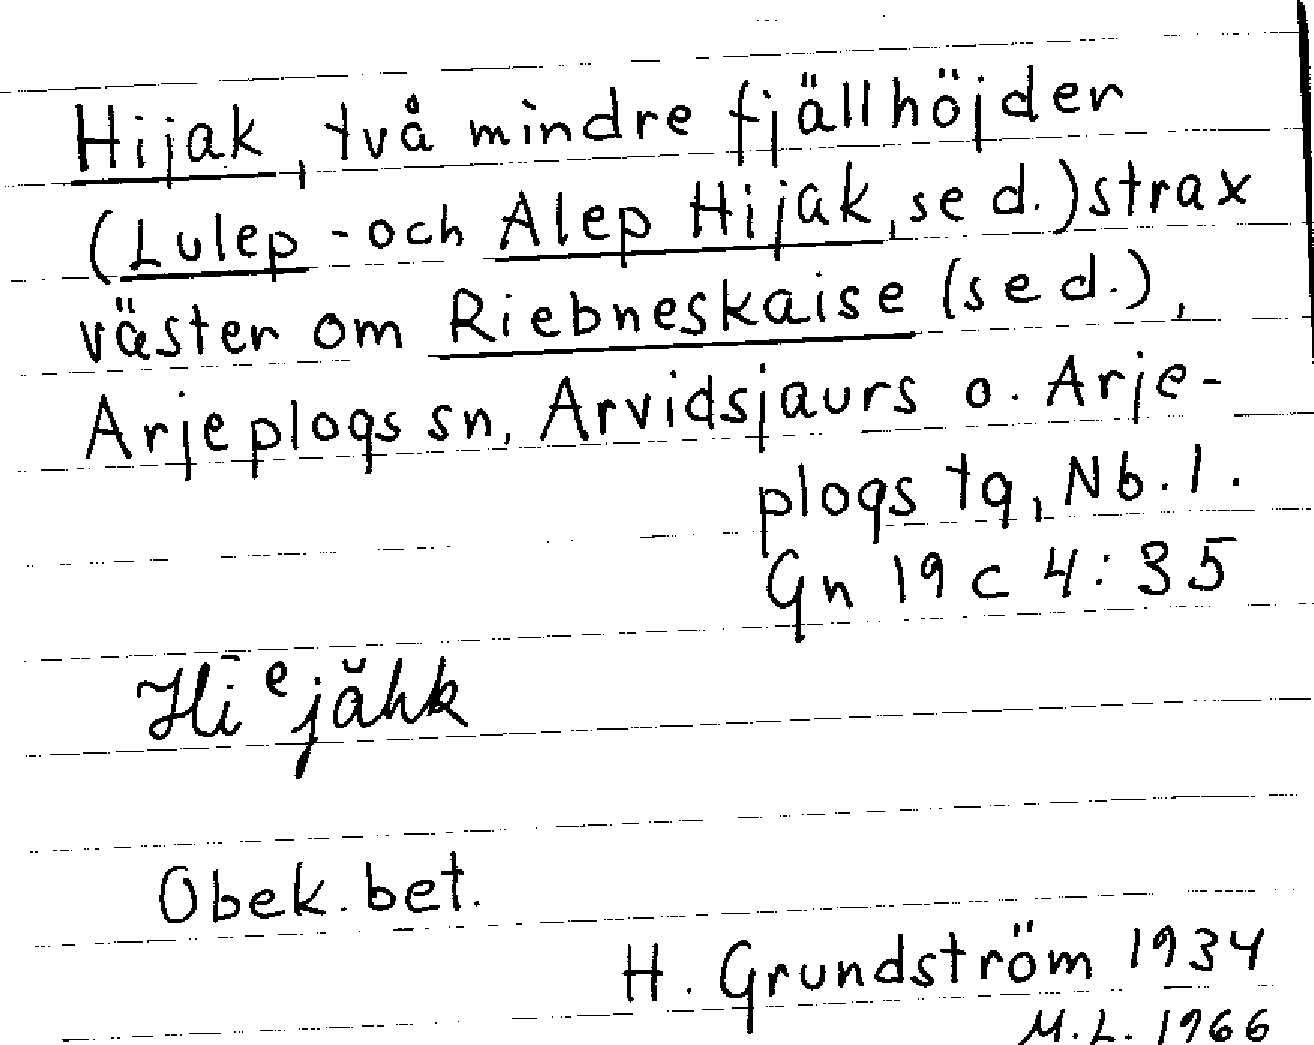 Hijak, två mindre fjällhöjder
(Lulep - och Alep Hijak, se d.) strax
väster om Riebneskaise (se d.),
Arjeplogs sn, Arvidsjaurs o. Arje-
plogs tg, Nb. l.
Gn 19 c 4:35
Hīᵉjăhk
Obek. bet.
H. Grundström 1934
M.L. 1966